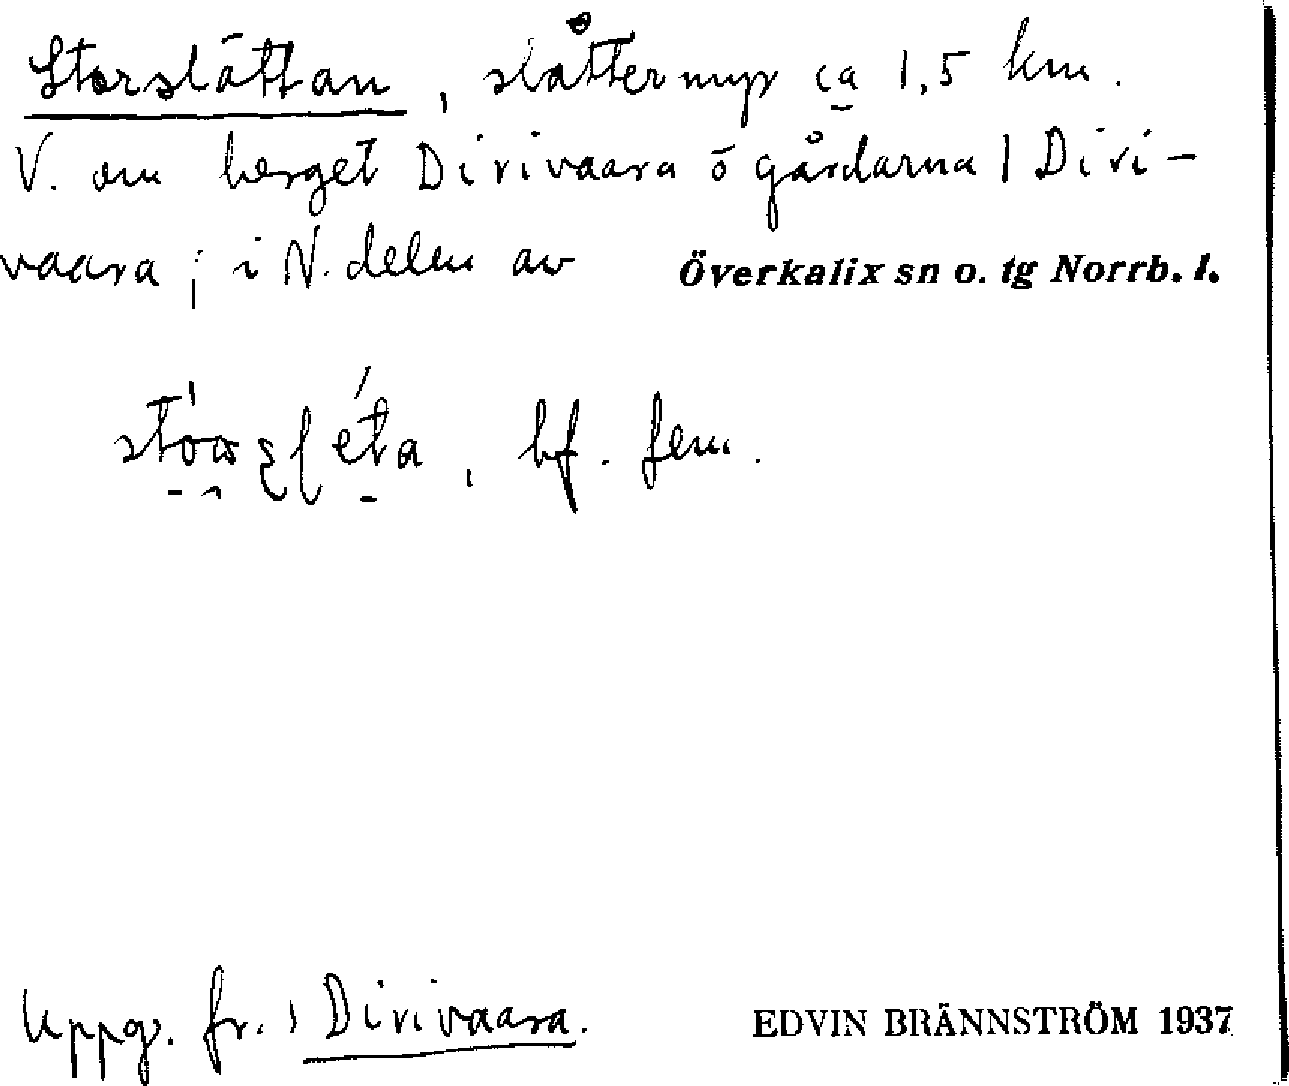 Storslåttan, slåttermyr ca 1,5 km.
V. om berget Dirivaara o gårdarna 1 Diri-
vaara; i N. delen av Överkalix sn o. tg Norrb. l.
, bf. fem.
Uppg. fr. 1 Dirivaara.
EDVIN BRÄNNSTRÖM 1937